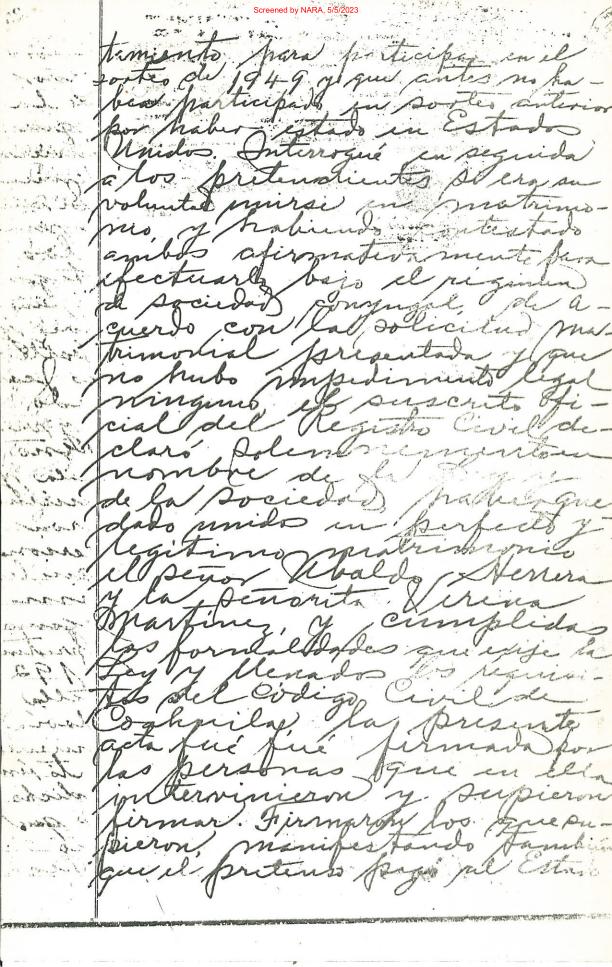 Screened by NARA, 5/5/2023
tamiento para participar en el
sorteo de 1949 y que antes no ha-
bia participado en sorteo anterior
por haber estado en Estados
Unidos. Interrogué en seguida
a los pretendientes si era su
voluntad unirse en matrimo-
nio y habiendo contestado
ambos afirmativamente para
efectuarlo bajo el régimen
de sociedad conyugal, de a-
cuerdo con la solicitud ma-
trimonial presentada y que
no hubo impedimento legal
ninguno, el suscrito Ofi-
cial del Registro Civil de-
claró solemnemente en
nombre de la
de la Sociedad, haber que-
dado unidos en perfecto y
legítimo matrimonio
el señor Ubaldo Herrera
y la señorita Virina
Martinez, y cumplidas
las formalidades que exije la
Ley y llenados los requisi-
tos del Código Civil de
Coahuila, la presente
acta fué fué firmada por
las personas que en ella
intervinieron y supieron
firmar. Firmaron los que su-
pieron, manifestando también
que el pretenso pagó al Estado